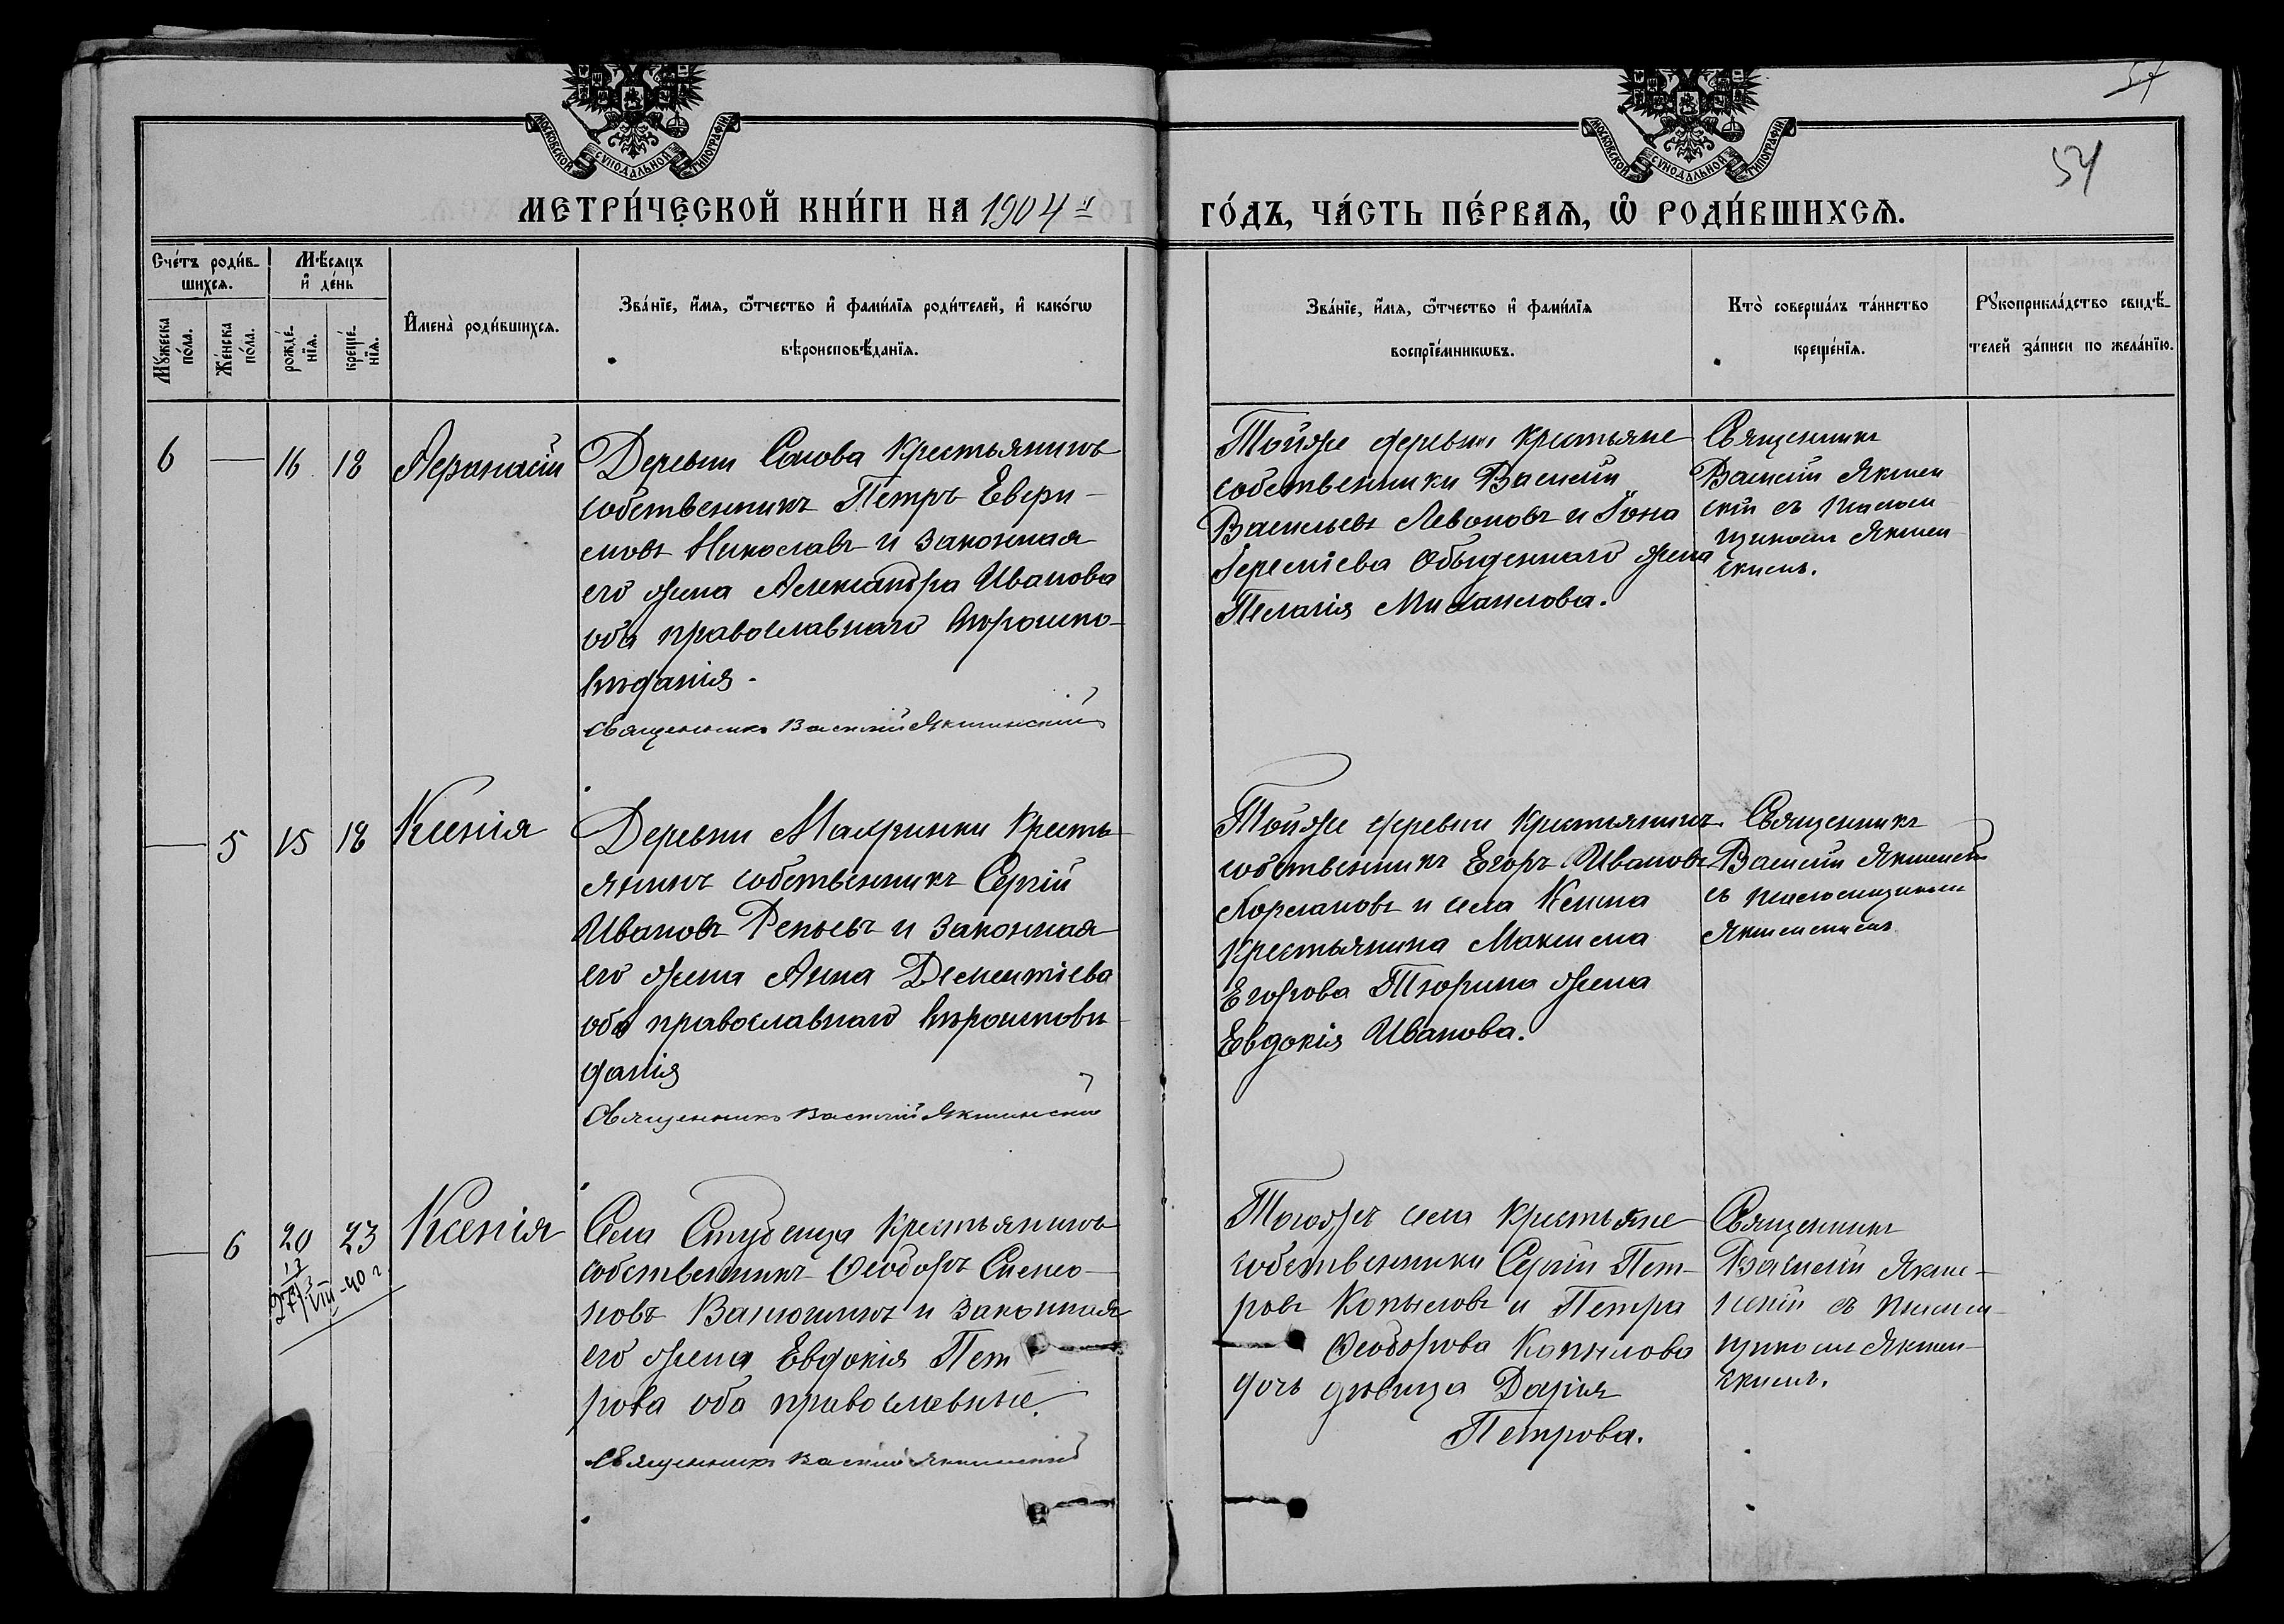 57
54
МОСКОВСКОЙ СѴНОДАЛЬНОЙ ТИПОГРАФІИ
МОСКОВСКОЙ СѴНОДАЛЬНОЙ ТИПОГРАФІИ
МЕТРИ́ЧЕСКОЙ КНИ́ГИ НА 1904 й
ГО́ДЪ, ЧА́СТЬ ПЕ́РВАѦ, Ѽ РОДИ́ВШИХСѦ.
Сче́тъ роди́в-
шихсѧ.
Мѣ́сѧцъ
и҆ де́нь
Мꙋ́жеска
по́ла.
Же́нска
по́ла.
рожде́-
нїѧ.
креще́-
нїѧ.
И҆мена̀ роди́вшихсѧ.
Зва́нїе, и҆́мѧ, ѻ҆́тчество и҆ фами́лїѧ роди́телей, и҆ како́гѡ
вѣроисповѣ́данїѧ.
Зва́нїе, и҆́мѧ, ѻ҆́тчество и҆ фами́лїѧ
воспрїе́мникѡвъ.
Кто̀ соверша́лъ та́инство
креще́нїѧ.
Рꙋкоприкла́дство свидѣ́-
телей за́писи по жела́нїю.
6 — 16 18 Аѳанасій
Деревни Сомова Крестьянинъ
собственникъ Петръ Евфи-
мовъ Николаевъ и законная
его жена Александра Иванова
оба православнаго вѣроиспо-
вѣданія.
Священникъ Василій Якшинскій
Тойже деревни крестьяне
собственники Василій
Васильевъ Левоновъ и Іона
Іереміева Обыденнаго жена
Пелагія Михаилова.
Священникъ
Василій Якшин
скій съ псалом
щикомъ Якшин
скимъ.
— 5 15 18 Ксенія
Деревни Макринки Кресть
янинъ собственникъ Сергій
Ивановъ Репьевъ и законная
его жена Анна Дементіева
оба православнаго вѣроисповѣ-
данія
Священникъ Василій Якшинскій
Тойже деревни крестьянинъ
собственникъ Егоръ Ивановъ
и села
Крестьянина Максима
Егорова Тюрина жена
Евдокія Иванова.
Священникъ
Василій Якшинскій
съ псаломщикомъ
Якшинскимъ
— 6 20 23 Ксенія
VIII-40 г.
Села Студенца Крестьянинъ
собственникъ Ѳеодоръ Симео-
новъ Ванюшинъ и законная
его жена Евдокія Пет
рова оба православные.
Священникъ Василій Якшинскій
Тогожъ села крестьяне
собственники Сергій Пет-
ровъ Копыловъ и Петра
Ѳеодорова Копылова
дочь дѣвица Дарія
Петрова.
Священникъ
Василій Якши-
нскій съ псалом-
щикомъ Якшин-
скимъ.